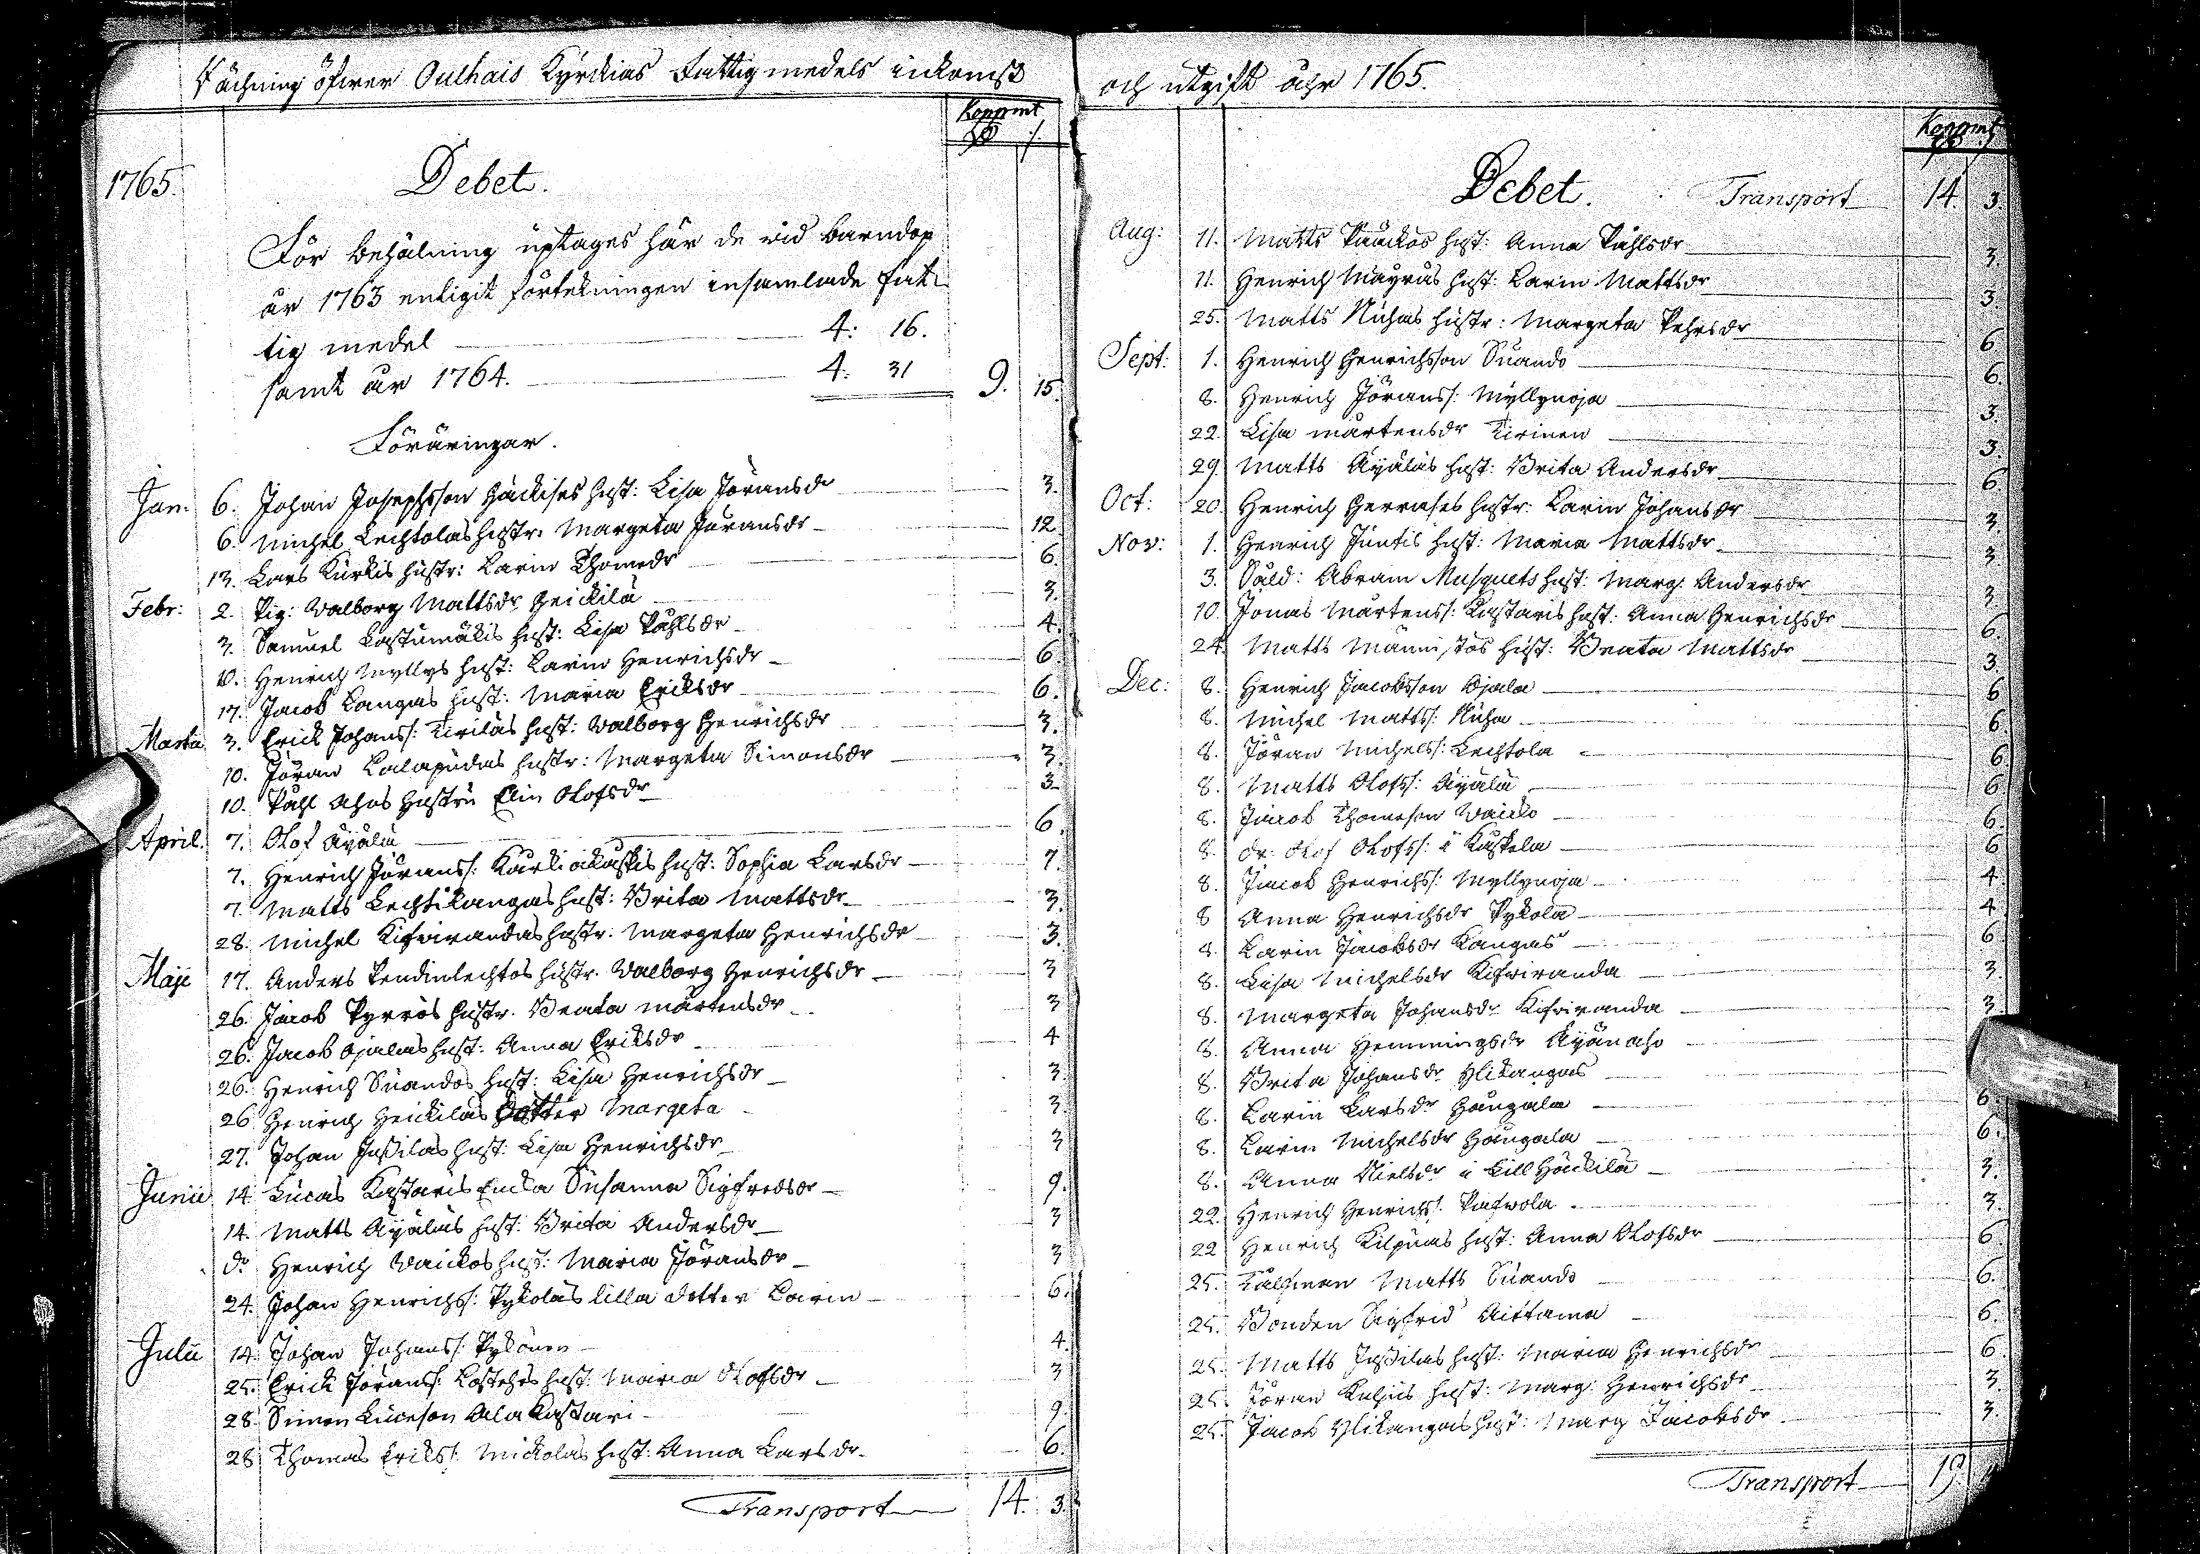 Räckning öfwer Oulhais Kyrckias Fattigmedels inkomst
Koppmt
1765.
Debet.
För behålning uptages här de vid barndop
år 1763 enligit förtekningen insamlade fat-
tig medel 4: 16.
samt år 1764. 4: 31 9. 15.
Föräringar.
Jan. 6. Johan Josephsson Häckises hust: Lisa Jöransdr 3.
6. Michel Lechtolas hustr: Margeta Jöransdr 12.
13. Lars Kurkis hustr: Carin Thomedr 6.
Febr: 2. Pig: Walborg Mattsdr Heickilä 3.
3. Samuel Lastumäkis hust: Lisa Påhlsdr 4.
10. Henrich Myllys hust: Carin Henrichsdr 6.
17. Jacob Kangas hust: Maria Ericksdr 6.
Martii 3. Erick Johanss: Tirilas hust: Walborg Henrichsdr 3.
10. Jöran Lalapudas hustr: Margeta Simonsdr 3.
10. Påhl Ahos hustru Elin Olofsdr 3.
April. 7. Olof Äyälä 6.
7. Henrich Jöranss: Kurkiokuskis hust: Sophia Larsdr 7.
7. Matts Lechtikangas hust: Brita Mattsdr 3.
28. Michel Kifwirandas hustr. Margeta Henrichsdr 3.
Maji 17. Anders Pendinlechtos hustr. Walborg Henrichsdr 3
26. Jacob Pyrrös hustr. Beata Mårtensdr 3
26. Jacob Ojalas hust: Anna Eriksdr 4
26. Henrich Suandos hust: Lisa Henrichsdr 3.
26 Henrich Heickilas Dotter Margeta 3.
27. Johan Jussilas hust: Lisa Henrichsdr 3
Junii 14. Lucas Kastaris Encka Susanna Sigfredsdr 9.
14. Matts Äyäläs hust: Brita Andersdr 3
do Henrich Wäickos hust: Maria Jöransdr 3
24. Johan Henrichss: Pykoläs lilla dotter Carin 6.
Julii 14. Johan Johanss: Pykönen 4.
25. Erick Jöranss: hust: Maria Olofsdr 3
28. Simon Lucesson Ala Kastari 9.
28. Thomas Erikss: Mickolas hust: Anna Larsdr 6.
Transport 14. 3.
och utgift åhr 1765.
Koppmt
Debet. Transport 14. 3.
Aug: 11. Matts Pauckos hust: Anna Påhlsdr 3.
11. Henrich Mayras hust: Carin Mattsdr 3.
25. Matts Niuhas hustr: Margeta Pehrsdr 6
Sept: 1. Henrich Henrichsson Suando 6.
8. Henrich Jöranss: Myllynoja 3.
22. Lisa Mårtensdr Tirinen 3.
29. Matts Äyäläs hust: Brita Andersdr 6.
Oct: 20. Henrich Herwases hustr: Carin Johansdr 3.
Nov: 1. Henrich Juntis hust: Maria Mattsdr 3
3. Sold: Abram Musquets hust: Marg: Andersdr 3
10. Jonas Mårtenss: Kastaris hust: Anna Henrichsdr 6.
24. Matts Männistös hust: Beata Mattsdr 3
Dec: 8. Henrich Jacobsson Ojala 6
8. Michel Mattss: Niuha 6.
8. Jöran Michelss: Lechtola 6
8. Matts Olofss: Äyälä 6
8. Jacob Thomeson Waicko 6.
8. dr: Olof Olofss: å Kuskela 6
8. Jacob Henrichss: Myllynoja 4
8 Anna Henrichsdr Pykola 4
8. Carin Jacobsdr Kangas 6
8. Lisa Michelsdr Kifwiranda 3.
8. Margeta Johansdr Kifwiranda 3.
8. Anna Hemmingsdr Äyänaho
8. Brita Johansdr Ylikangas
8. Carin Larsdr Haugala 6.
8. Carin Michelsdr Haugala 6.
8. Anna Nielsdr å Lill Häckilä 3.
22. Henrich Henrichs: Pafwola 3.
22 Henrich Kilpuas hust: Anna Olofsdr 6
25. Tålfman Matts Suando 6.
25. Bonden Sigfrid Aittama 6.
25. Matts Jussilas hust: Maria Henrichsdr 6
25. Jöran Kuljus hust: Marg: Henrichsdr 3.
25. Jacob Ylikangas hust: Marg Jacobsdr 3.
Transport 19.